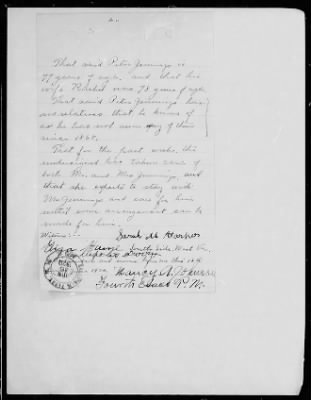 That said Peter Jennings is
77 years of age, and that his
wife Rachel was 78 years of age.
That said Peter Jennings has
no relatives that he knows of
as he has not seen any of them
since 1865.
That for the past weeks, the
undersigned has taken care of
both Mr. and Mrs Jennings, and
that she expects to stay with
Mr Jennings and care for him
until some arrangement can be
made for him.
Witness:
Sarah M
South Side, West Va
and sworn before me this
Nancy A. Johnson
Fourth Class P. M.